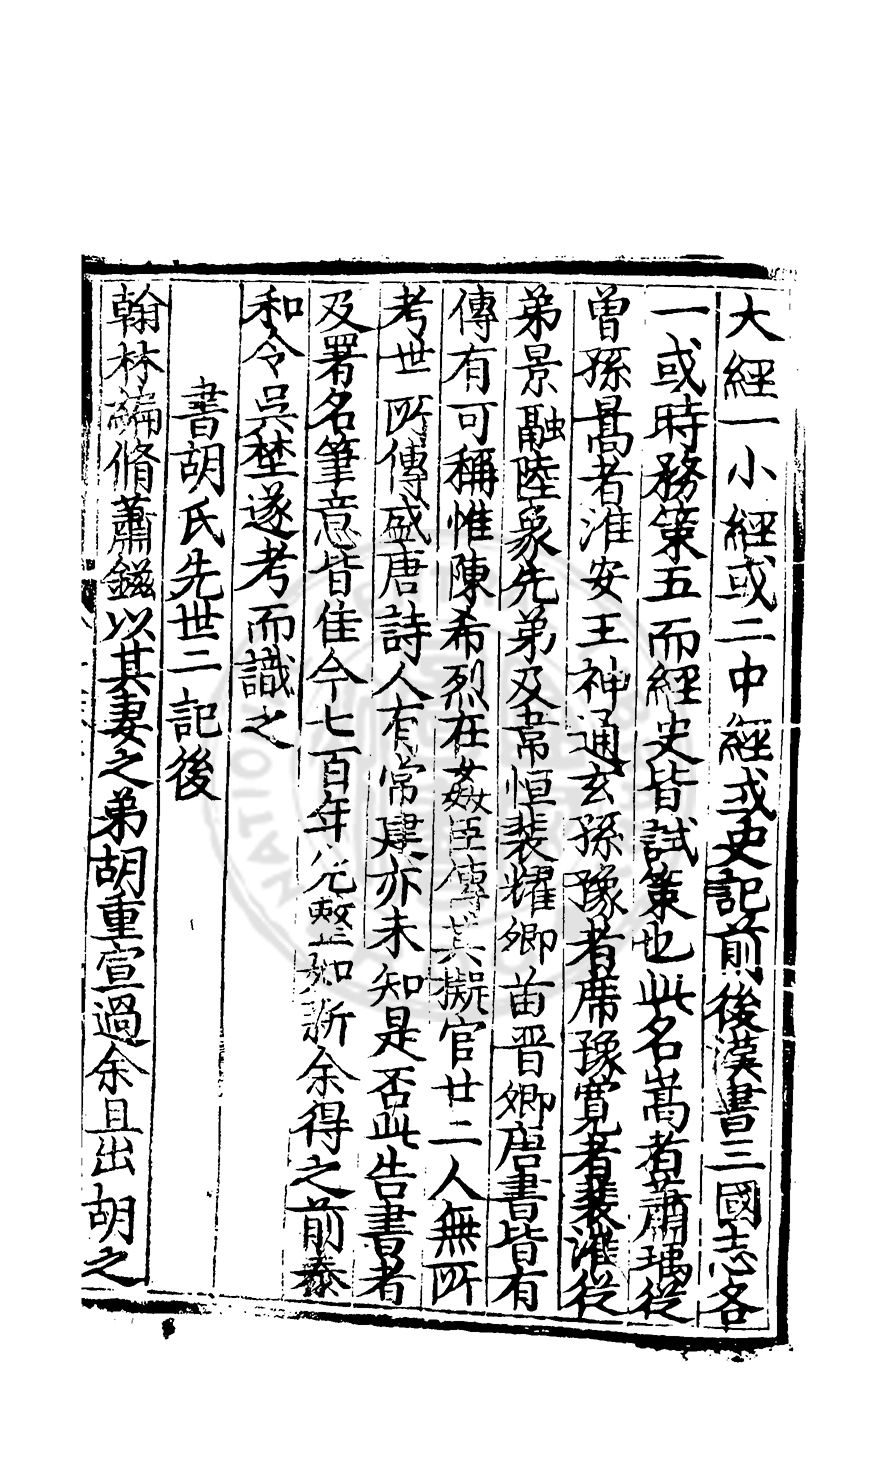 大經一小經或二中經或史記前後漢書三國志各
一或時務策五而經史皆試策也此名嵩者蕭瑀從
曾孫暠者淮安王神通玄孫豫者席豫寬者裴漼從
弟景融陸象先弟及韋恒裴耀卿苗晉卿唐書皆有
傳有可稱惟陳希烈在姦臣傳其擬官廿二人無所
考世所傳盛唐詩人有常建亦未知是否此告書者
及署名筆意皆佳今七百年完整如新余得之前泰
和令吳埜遂考而識之
書胡氏先世二記後
翰林編脩蕭鎡以其妻之弟胡重宣過余且出胡之